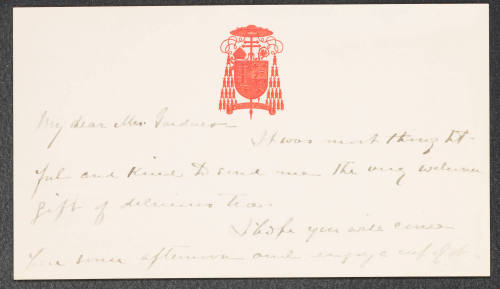 My dear Mrs Gardner
It was most thought-
ful and kind to send me the very welcome
gift of delicious tea.
I hope you will come
here some afternoon and enjoy a cup of it.